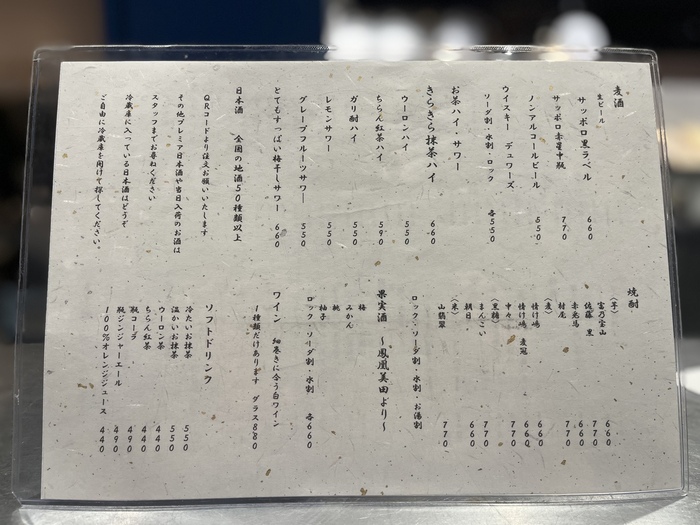 麦酒
生ビール
サッポロ黒ラベル 660
サッポロ赤星中瓶 770
ノンアルコールビール 550
ウイスキー デュワーズ
ソーダ割・水割・ロック 各550
お茶ハイ・サワー
きらきら抹茶ハイ 660
ウーロンハイ 550
ちらん紅茶ハイ 590
ガリ酎ハイ 550
レモンサワー 550
グレープフルーツサワー 550
とてもすっぱい梅干しサワー 660
日本酒 全国の地酒50種類以上
QRコードより注文お願いいたします
その他プレミア日本酒や当日入荷のお酒は
スタッフまでお尋ねください
冷蔵庫に入っている日本酒はどうぞ
ご自由に冷蔵庫を開けて探してください。
焼酎
(芋)
富乃宝山 660
佐藤 黒 770
赤兎馬 660
村尾 770
(麦)
情け嶋 660
情け嶋 麦冠 660
中々 770
(黒糖)
まんこい 770
朝日 660
(米)
山翡翠 770
ロック・ソーダ割・水割・お湯割
果実酒 〜鳳凰美田より〜
梅
みかん
桃
柚子
ロック・ソーダ割・水割 各660
ワイン 細巻きに合う白ワイン
1種類だけあります グラス880
ソフトドリンク
冷たいお抹茶 550
温かいお抹茶 550
ウーロン茶 440
ちらん紅茶 440
瓶コーラ 490
瓶ジンジャーエール 490
100%オレンジジュース 440